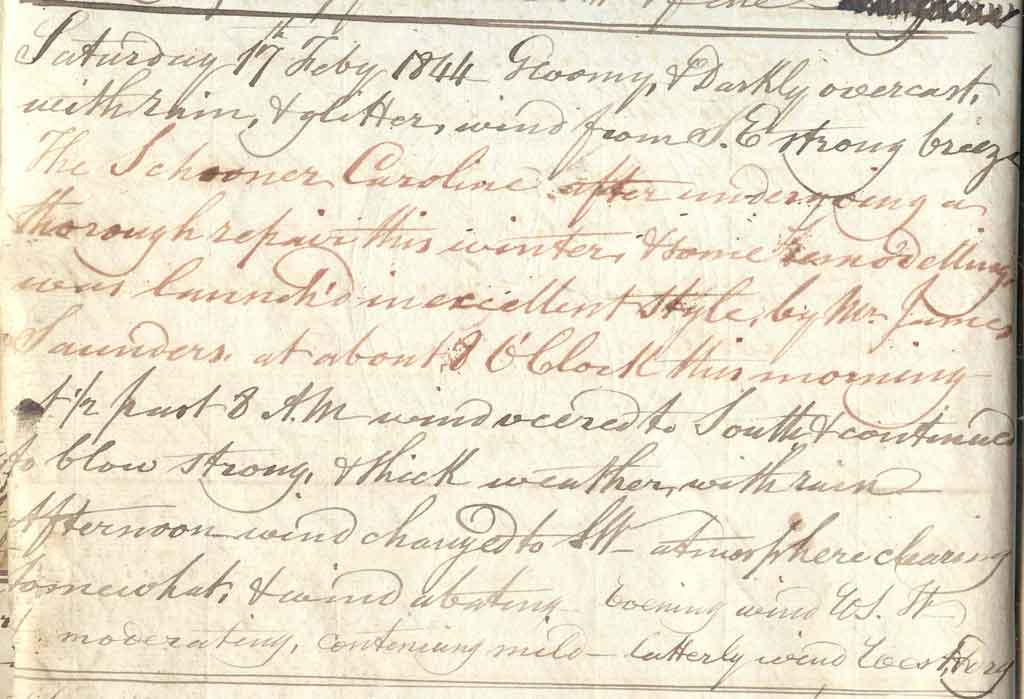 fine
Saturday 17th Feby 1844 Gloomy, & Darkly overcast,
with rain, & glitter, wind from S.E strong breeze
The Schooner Caroline after undergoing a
thorough repair this winter, & some remodelling,
was launch'd in excellent style, by Mr. James
Saunders. at about 8 O'Clock this morning
at 1/2 past 8 A.M wind veered to South, & continued
to blow strong, & thick weather, with rain
Afternoon wind changed to SW - atmosphere clearing
somewhat, & wind abating - Evening wind WS.W
moderating, contenuing mild - latterly wind West